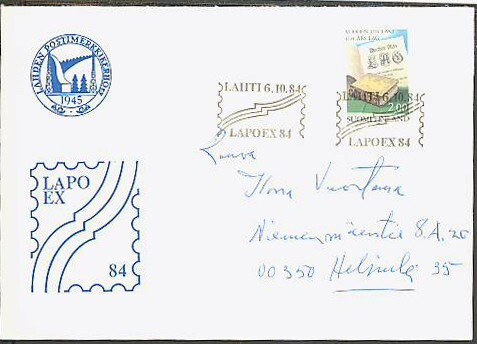 LAHDEN POSTIMERKKIKERHO
1945
LAPO
EX
84
LAHTI 6.10.84
LAPOEX 84
LAHTI 6.10.84
LAPOEX 84
LAG
2,00
SUOMI FINLAND
Rouva
Ilona Vuortama
Niemenmäentie 8.A.20
00350 Helsinki 35